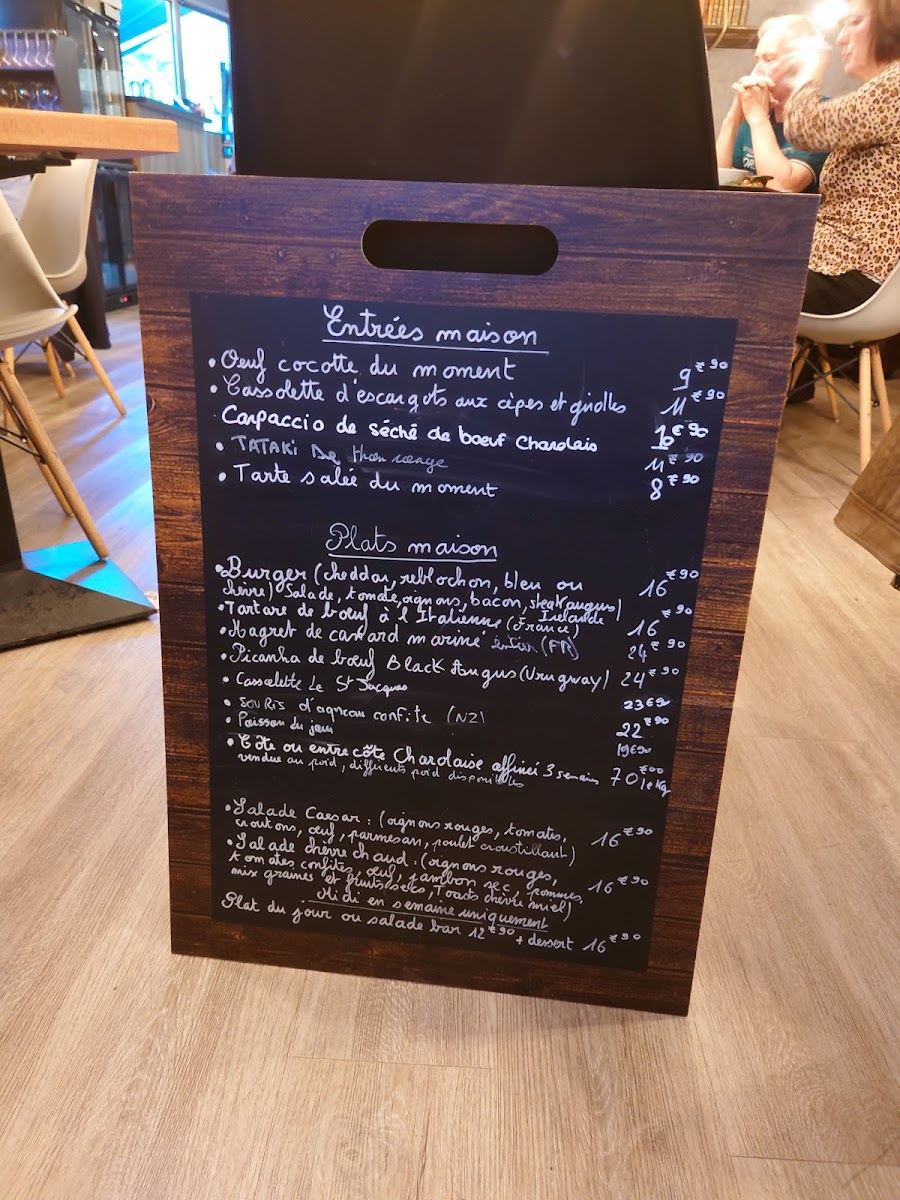 Entrées maison
• Oeuf cocotte du moment 9€90
• Cassolette d'escargots aux cèpes et girolles 11€90
Carpaccio de séché de boeuf Charolais 1€90
• TATAKI De Thon rouge 11€90
• Tarte salée du moment 8€90
Plats maison
• Burger (cheddar, reblochon, bleu ou 16€90
chèvre) Salade, tomate, oignons, bacon, steak angus) Irelande
• Tartare de boeuf à l'Italienne (France) 16€90
• Magret de canard mariné entier (FR) 24€90
• Picanha de boeuf Black Angus (Uruguay) 24€90
• Cassolette de St Jacques 23€90
• SOURIS d'agneau confite (NZ) 22€90
• Poisson du jour 19€90
• Côte ou entrecôte Charolaise affinée 3 semaines 70€00 le kg
vendue au poid, différents poid disponibles
• Salade Caesar : (oignons rouges, tomates, 16€90
croutons, oeuf, parmesan, poulet croustillant)
• Salade chèvre chaud : (oignons rouges,
tomates confites, oeuf, jambon sec, pommes, 16€90
mix graines et fruits secs, Toasts chèvre miel)
Midi en semaine uniquement
Plat du jour ou salade bar 12€90 + dessert 16€90